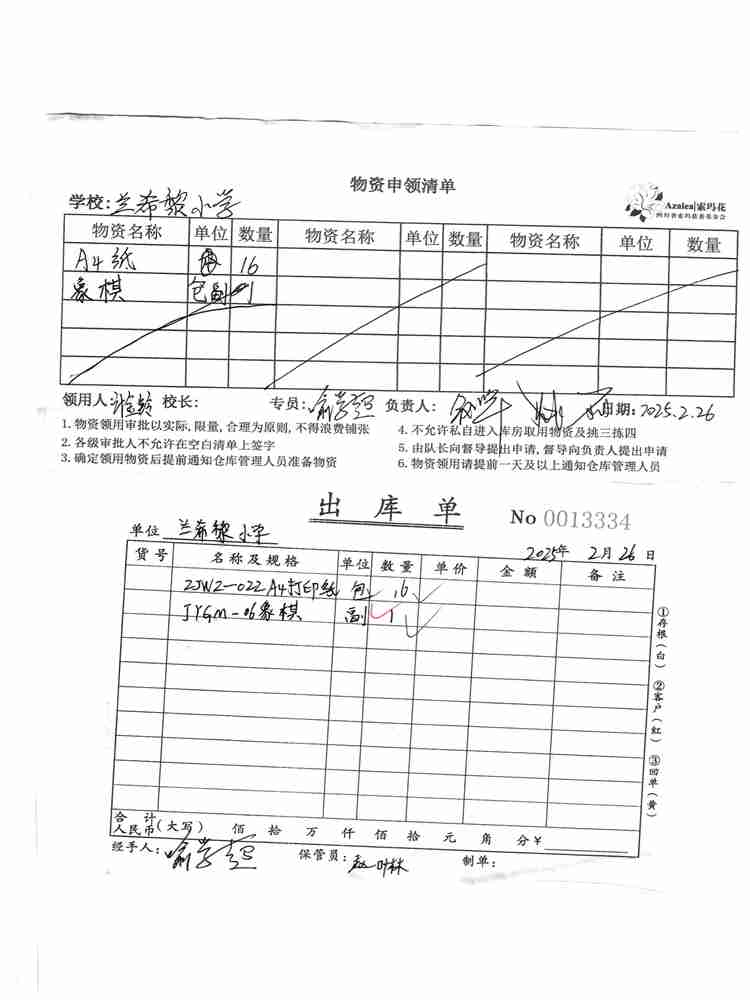 物资申领清单
Azalea|索玛花
四川省索玛慈善基金会
学校:兰希黎小学
物资名称 单位 数量 物资名称 单位 数量 物资名称 单位 数量
A4纸 16
象棋 副 1
领用人: 校长: 专员: 负责人: 日期:2025.2.26
1.物资领用审批以实际,限量,合理为原则,不得浪费铺张
2.各级审批人不允许在空白清单上签字
3.确定领用物资后提前通知仓库管理人员准备物资
4.不允许私自进入库房取用物资及挑三拣四
5.由队长向督导提出申请,督导向负责人提出申请
6.物资领用请提前一天及以上通知仓库管理人员
出库单
No 0013334
单位 兰希黎小学 2025年 2月26日
货号 名称及规格 单位 数量 单价 金额 备注
ZJWZ-022 A4打印纸 包 16
JYGM-06象棋 副 1
①存根(白) ②客户(红) ③回单(黄)
合计人民币(大写) 佰 拾 万 仟 佰 拾 元 角 分¥
经手人: 保管员: 赵叶林 制单: